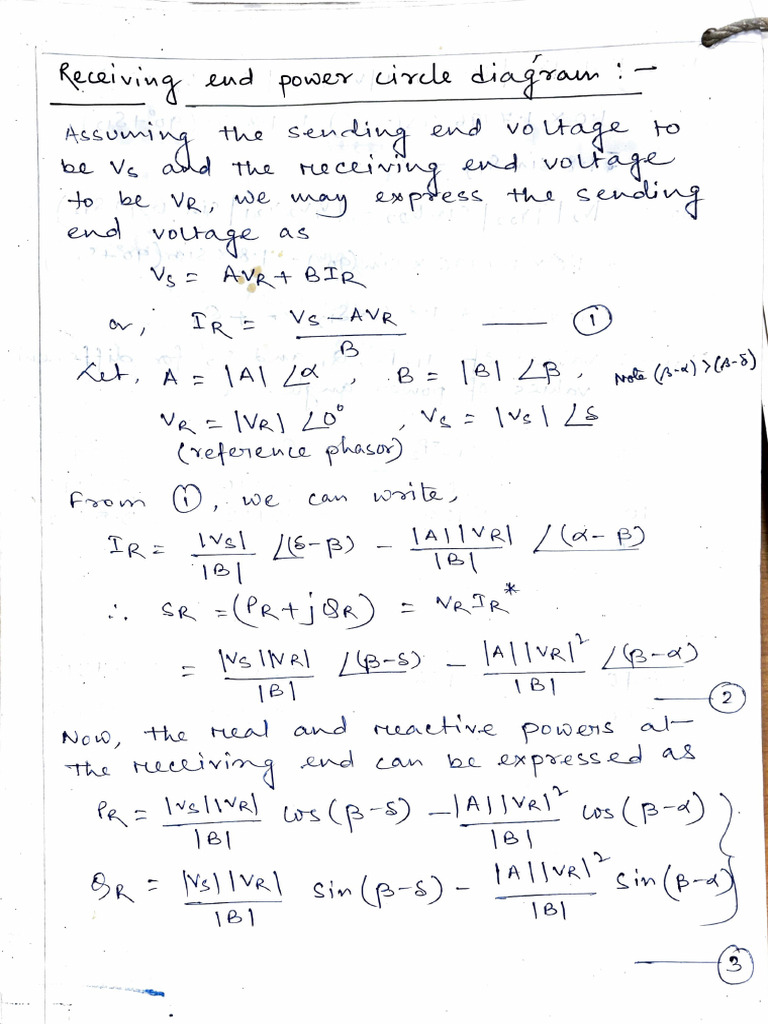 Receiving end power circle diagram : –
Assuming the sending end voltage to
be Vs and the receiving end voltage
to be VR, we may express the sending
end voltage as
Vs = AVR + BIR
or, IR = Vs – AVR / B —— ①
Let, A = |A| ∠α , B = |B| ∠β , Note (β-α) > (β-δ)
VR = |VR| ∠0° , Vs = |Vs| ∠δ
(reference phasor)
From ①, we can write,
IR = |Vs|/|B| ∠(δ-β) – |A||VR|/|B| ∠(α-β)
∴ SR = (PR + jQR) = VRIR*
= |Vs||VR|/|B| ∠(β-δ) – |A||VR|²/|B| ∠(β-α)
—— ②
Now, the real and reactive powers at
the receiving end can be expressed as
PR = |Vs||VR|/|B| cos(β-δ) – |A||VR|²/|B| cos(β-α)
QR = |Vs||VR|/|B| sin(β-δ) – |A||VR|²/|B| sin(β-α)
—— ③